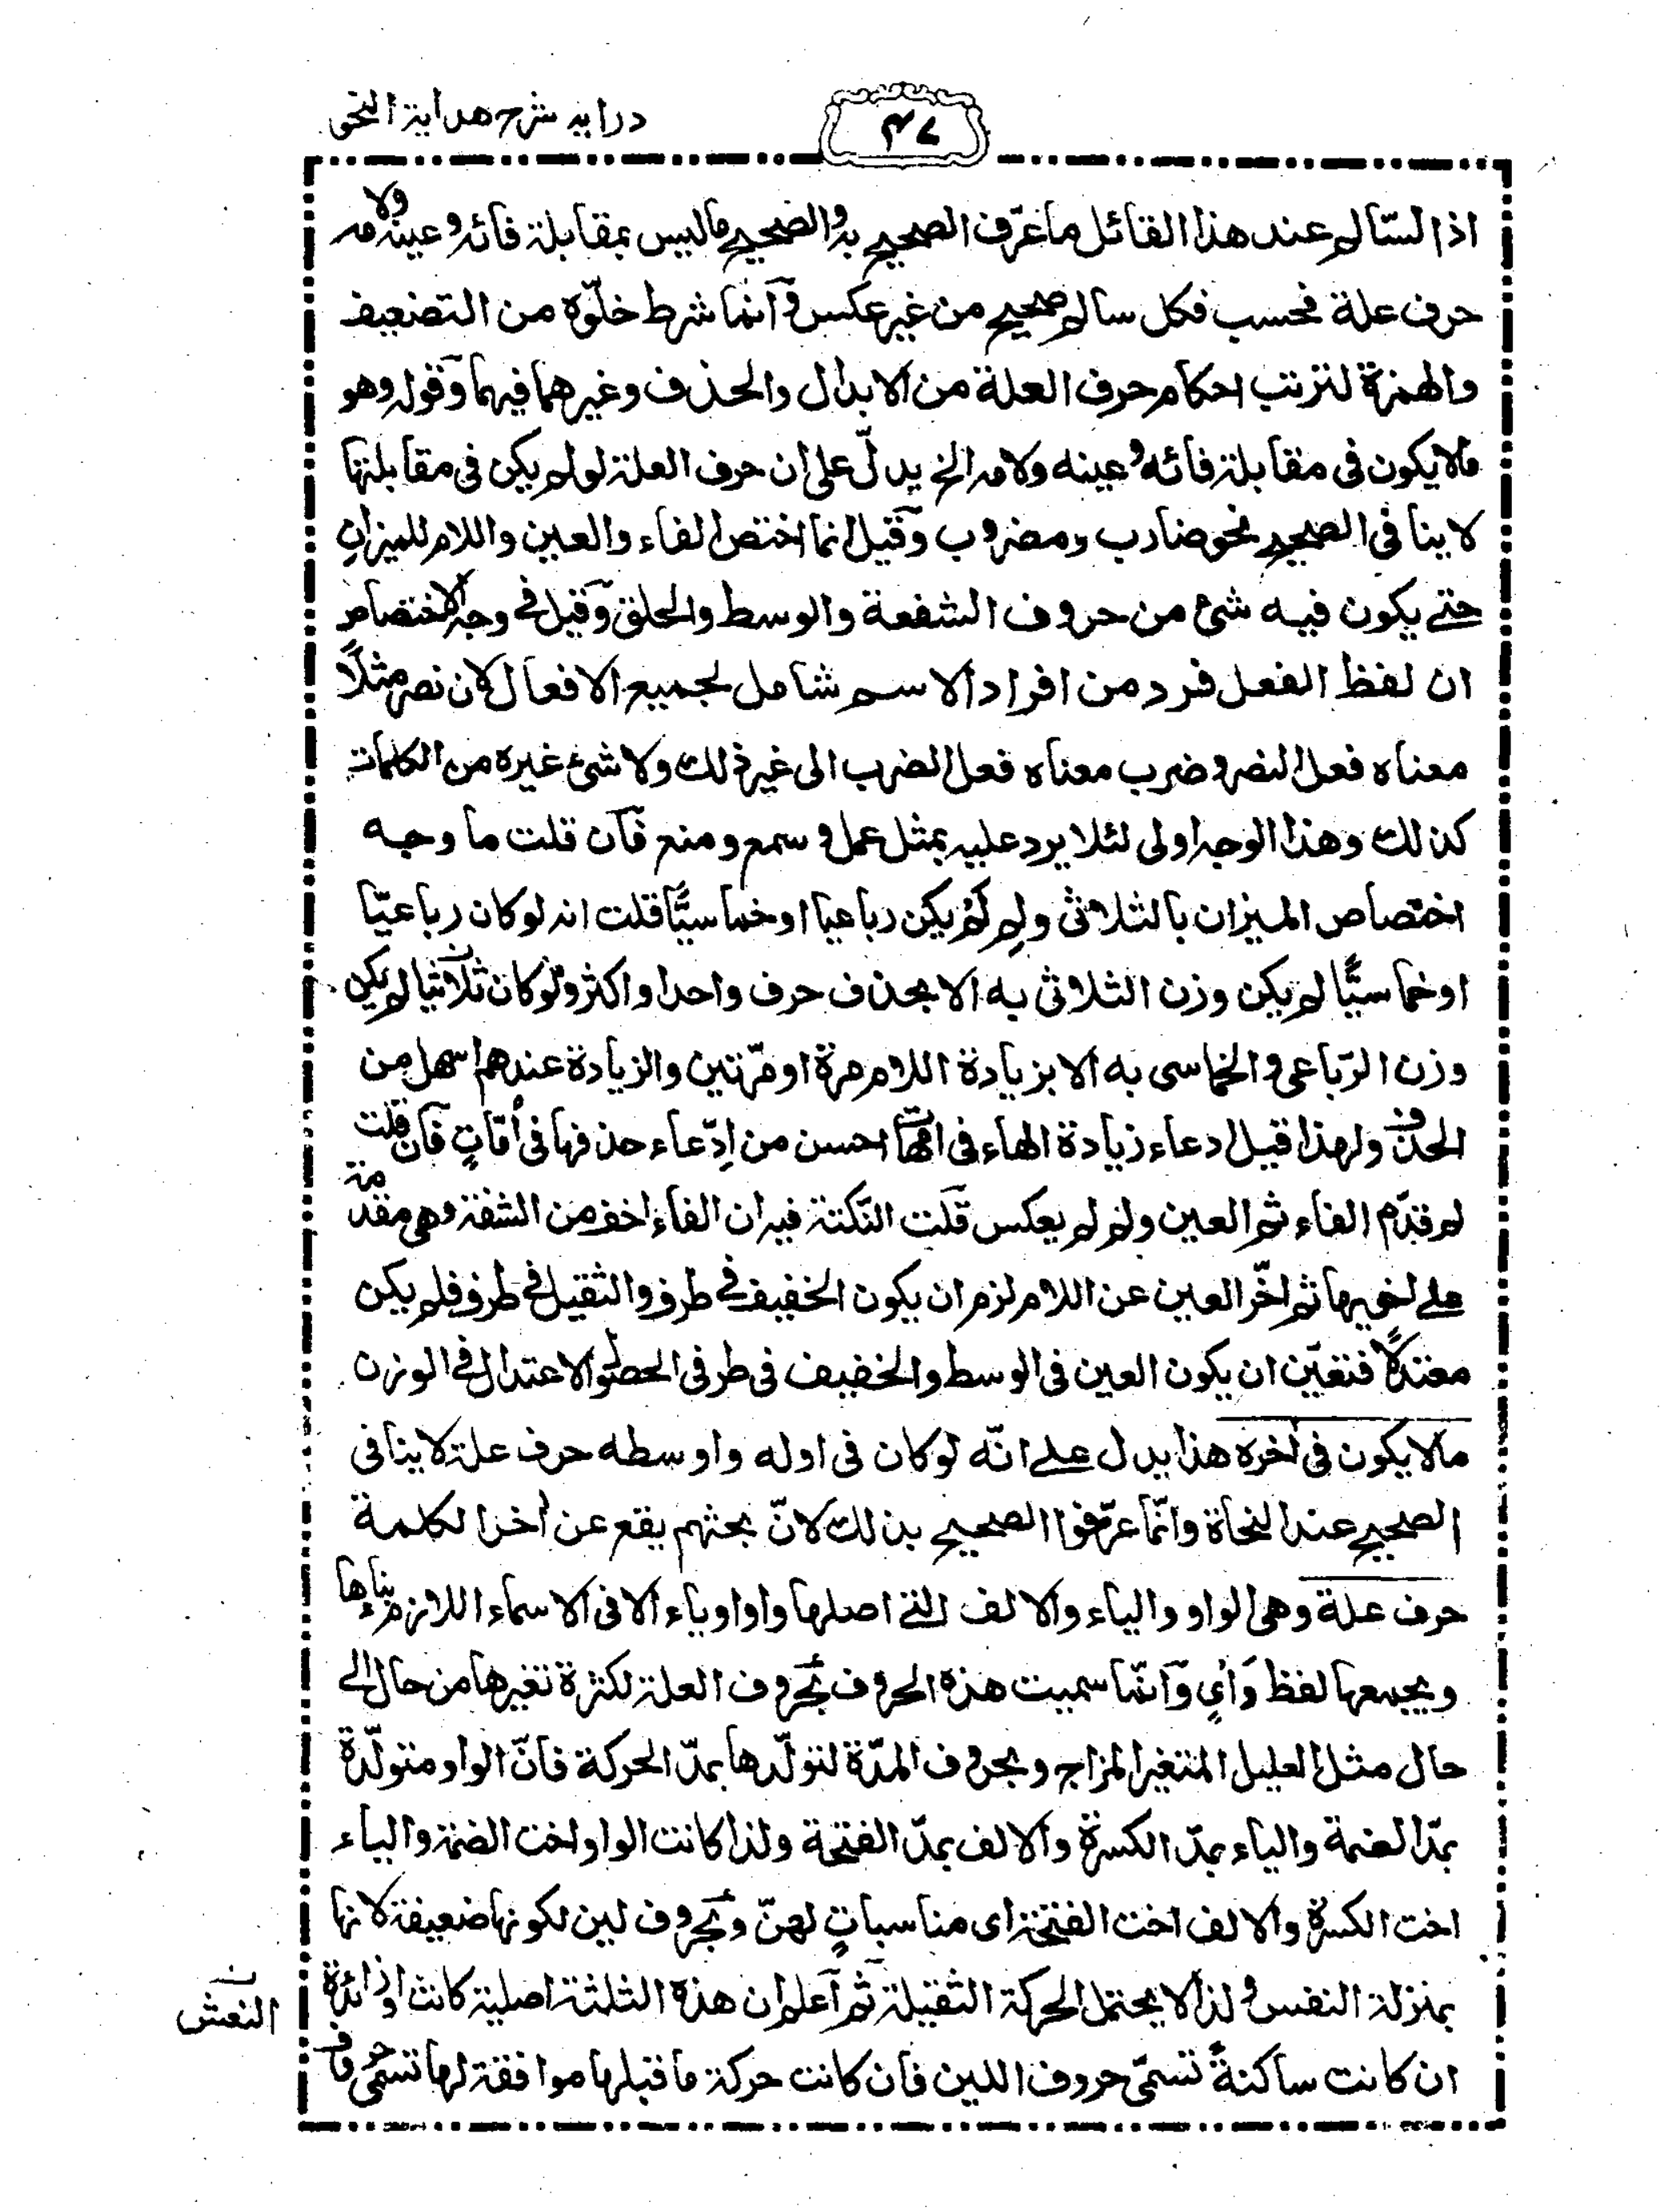 درايه شرح هداية النحو
٤٧
اذ السّالم عند هذا القائل ما عرّف الصحيح به والصحيح ما ليس بمقابلة فائه وعينه ولامه
حرف علة فحسب فكل سالم صحيح من غير عكس وانما شرط خلوّه من التضعيف
والهمزة لترتب احكام حرف العلة من الابدال والحذف وغيرهما فيهما وقوله وهو
مالا يكون فى مقابلة فائه وعينه ولامه الخ يدلّ على ان حرف العلة لو لم يكن فى مقابلتها
لا ينافى الصحيح نحو ضارب ومضروب وقيل انما اختص الفاء والعين واللام للميزان
حتے يكون فيه شئ من حروف الشفعة والوسط والحلق وقيل فے وجه الاختصاص
ان لفظ الفعل فرد من افراد الاسم شامل لجميع الافعال لان نصر مثلاً
معناه فعل النصر وضرب معناه فعل الضرب الى غير ذلك ولا شئ غيره من الكلمات
كذلك وهذا الوجه اولى لئلا يرد عليه بمثل عمل وسمع ومنع فان قلت ما وجه
اختصاص الميزان بالثلاثى ولِم لَمْ يكن رباعيا او خماسيًّا قلت انه لو كان رباعيّا
او خماسيًّا لم يكن وزن الثلاثى به الا بحذف حرف واحد او اكثر ولو كان ثلاثيا لم يكن
وزن الرّباعى والخماسى به الا بزيادة اللام مرة او مرّتين والزيادة عندهم اسهل من
الحذف ولهذا قيل ادعاء زيادة الهاء فى امّهات احسن من اِدّعاء حذفها فى اُمّاتٍ فان قلت
لم قدّم الفاء ثم العين ولم لم يعكس قلت النّكتة فيه ان الفاء اخف من الشفة وهى مقدمة
علے اخويها ثم اخّر العين عن اللام لزم ان يكون الخفيف فے طرف والثقيل فے طرف فلم يكن
معتدلاً فتعيّن ان يكون العين فى الوسط والخفيف فى طرفى الحصل والاعتدال فے الوزن
مالا يكون فى اخره هذا يدل علے انّه لو كان فى اوله واوسطه حرف علة لا ينافى
الصحيح عند النحاة وانّما عرّفوا الصحيح بذلك لانّ بحثهم يقع عن اخر الكلمة
حرف علة وهى الواو والياء والالف التے اصلها واو او ياء الا فى الاسماء اللازم بناءها
ويجمعها لفظ وَاْىٍ وانّما سميت هذه الحروف بحروف العلة لكثرة تغيرها من حال الے
حال مثل العليل المتغير المزاج وبحروف المدّة لتولّدها بمدّ الحركة فانّ الواو متولّدة
بمدّ الضمة والياء بمدّ الكسرة والالف بمدّ الفتحة ولذا كانت الواو اخت الضمة والياء
اخت الكسرة والالف اخت الفتحة اى مناسباتٍ لهنّ وبحروف لين لكونها ضعيفة لانها
بمنزلة النفس ولذا لا يحتمل الحركة الثقيلة ثم اعلم ان هذه الثلثة اصلية كانت او زائدة
النعش
ان كانت ساكنةً تسمّى حروف اللين فان كانت حركة ما قبلها موافقة لها تسمّى حروف